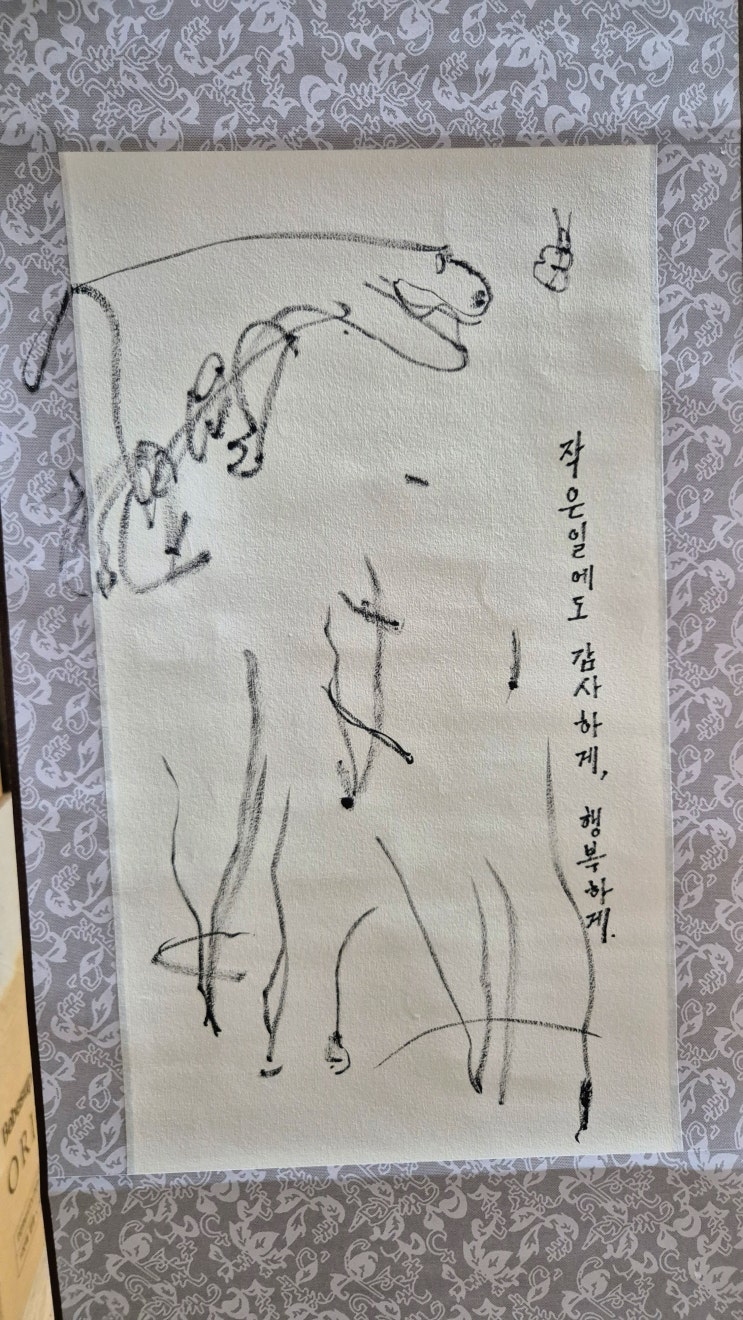 작은일에도 감사하게, 행복하게.
ORI